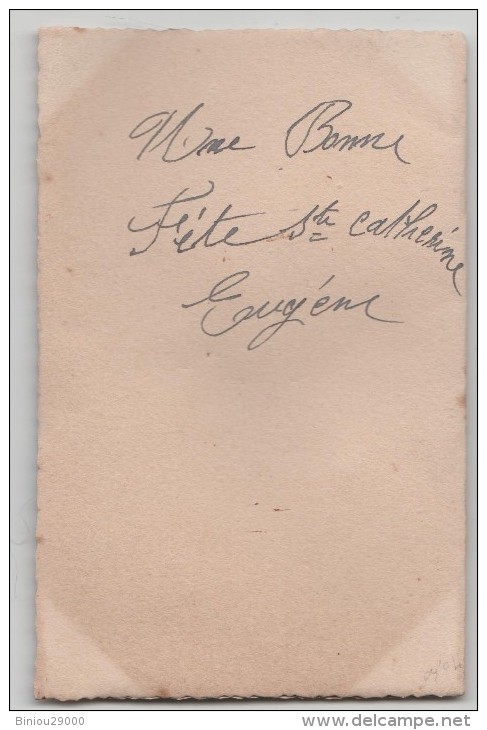 Une Bonne
Fête Ste Catherine
Eugène
Biniou29000
www.delcampe.net